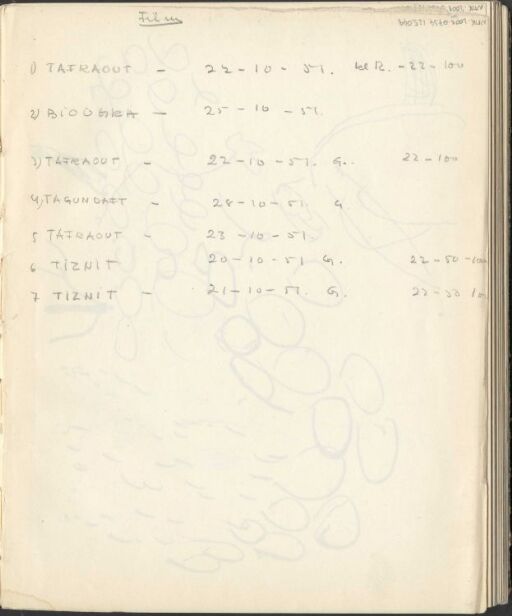 Film
1) TAFRAOUT - 22-10-51. kl R. - 22-100
2) BIOUGRA - 25-10-51.
3) TAFRAOUT - 22-10-51. G. 22-100
4) TAGUNDAFT - 28-10-51 G
5 TAFRAOUT - 23-10-51.
6 TIZNIT 20-10-51 G. 22-50-100
7 TIZNIT - 21-10-51. G.